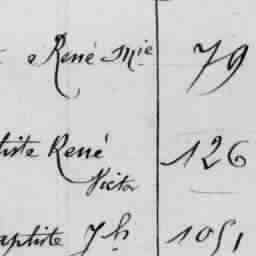 René Mie 79
tiste René 126
Victor
aptiste Jh 1051